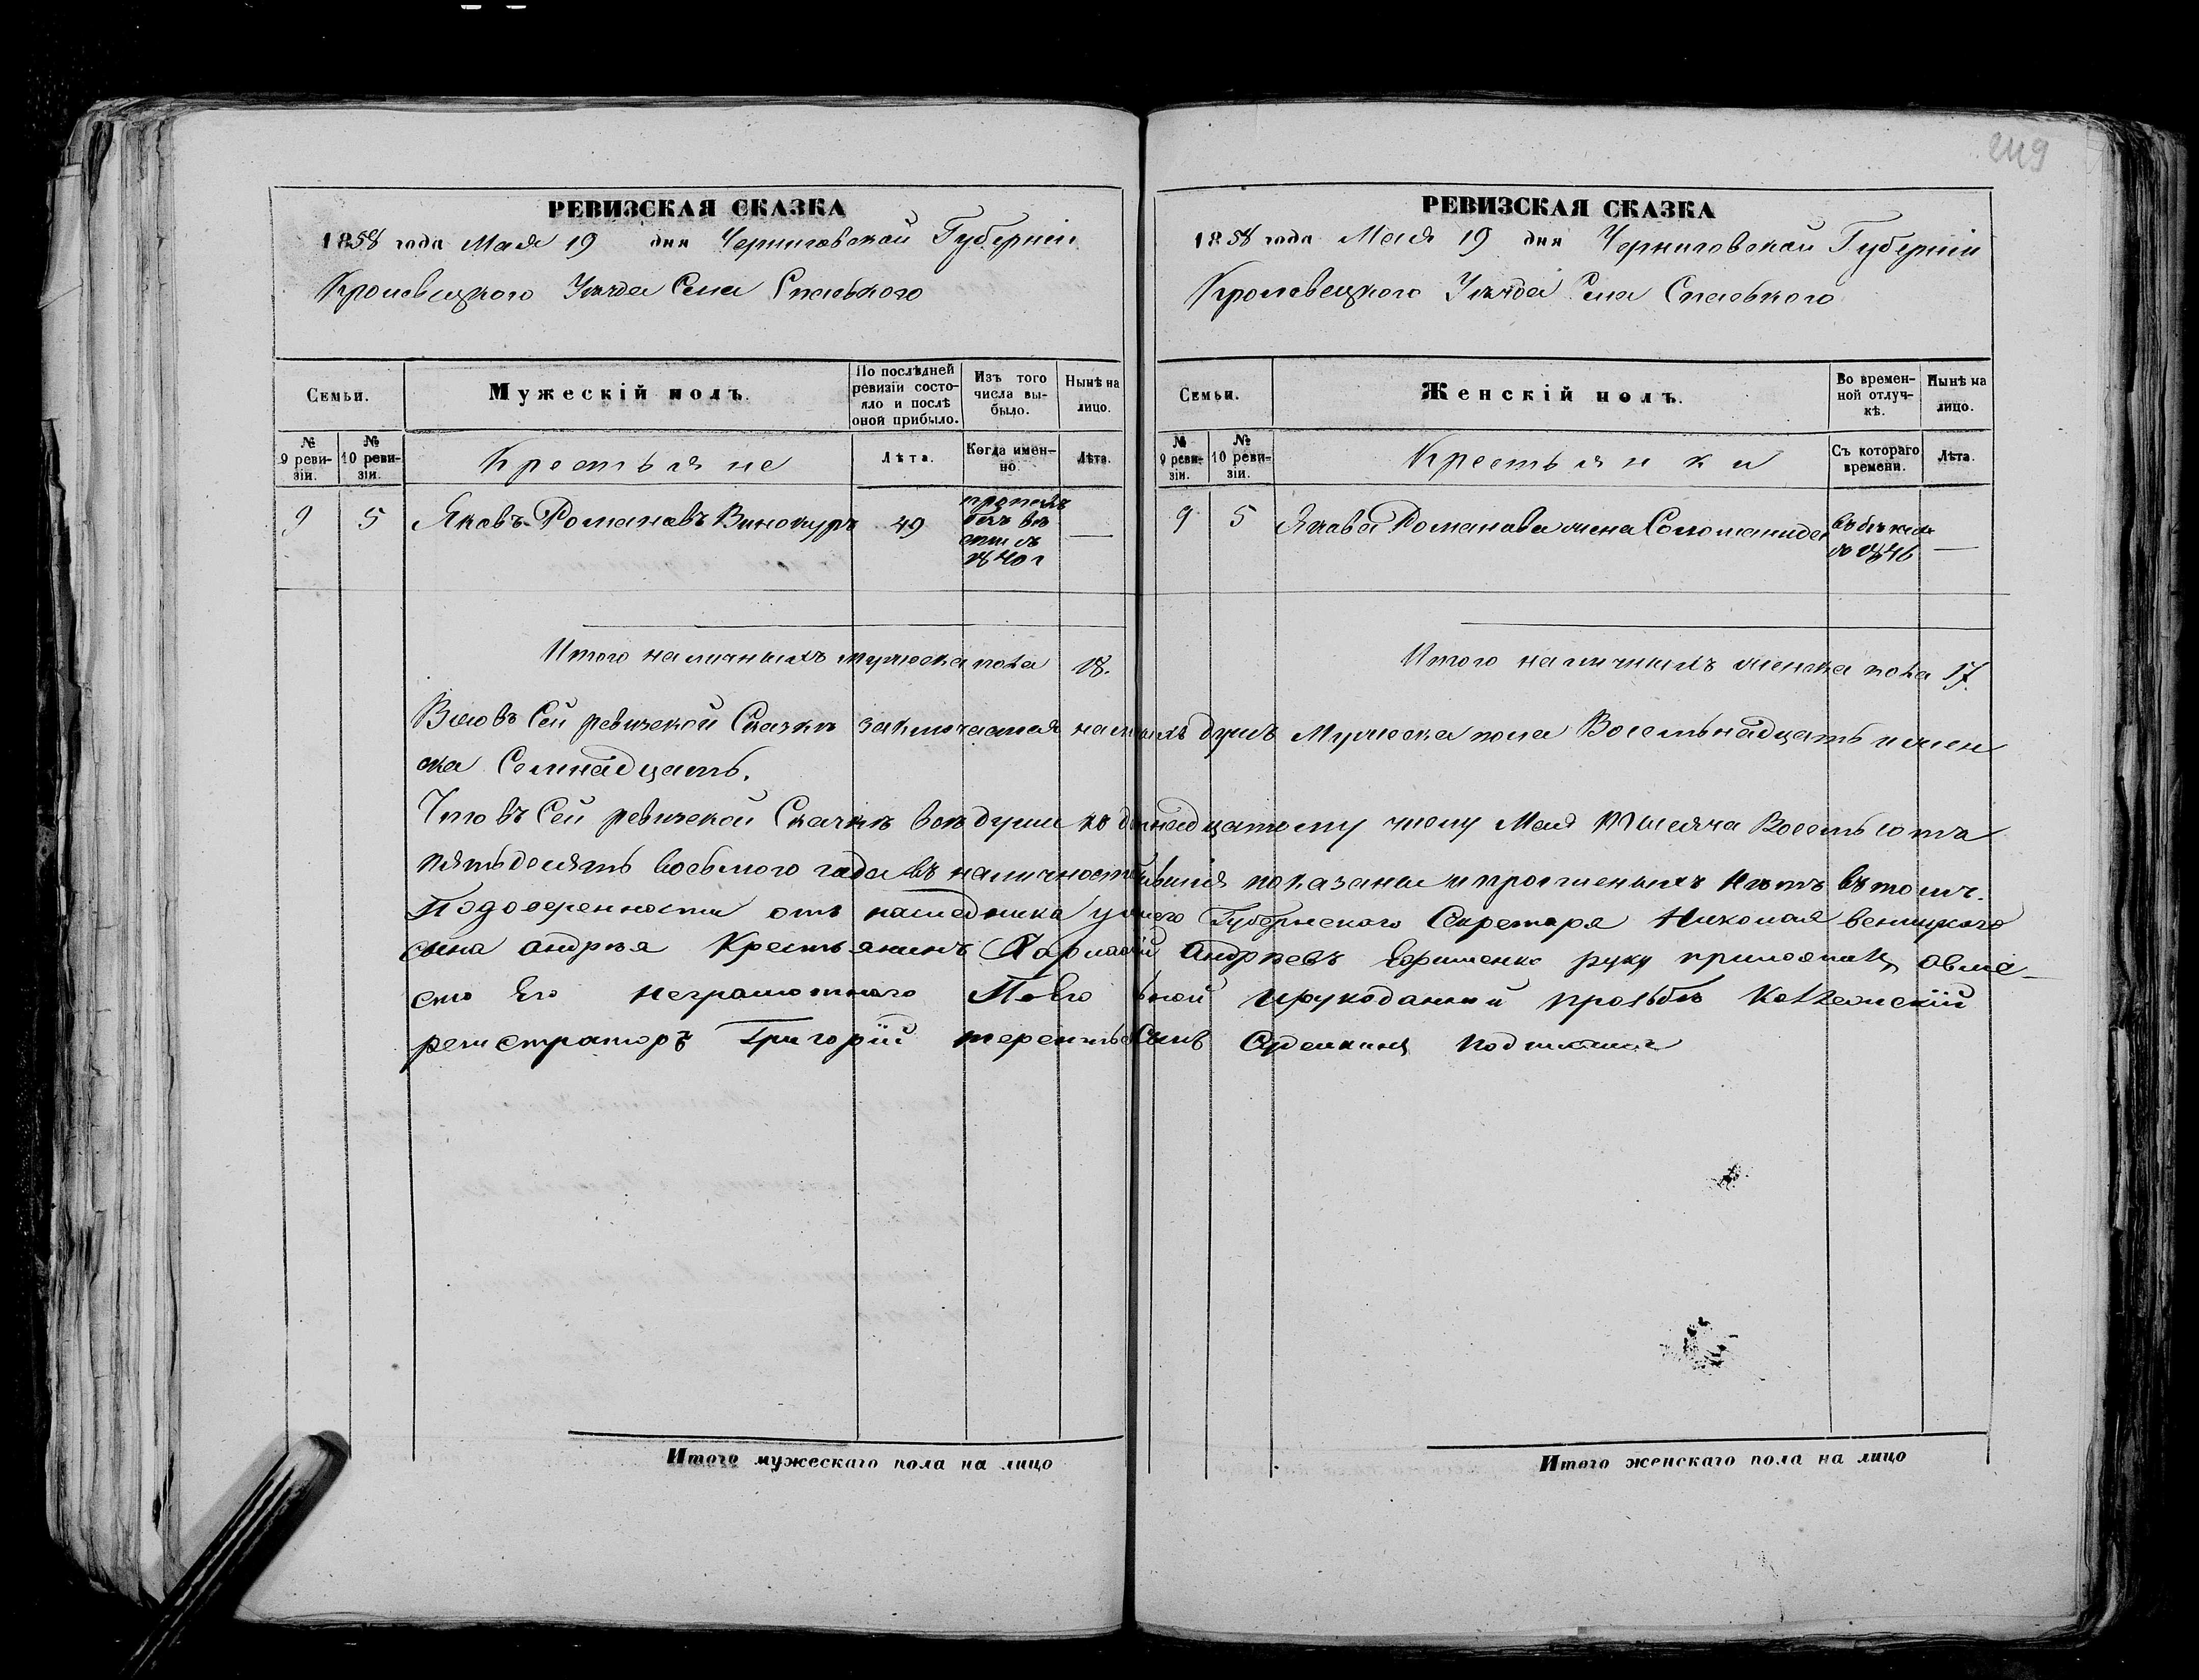 249
РЕВИЗСКАЯ СКАЗКА
1858 года Мая 19 дня Черниговской Губерніи
Кролевецкого Уѣзда Села Спаского
Семьи.
Мужескій полъ.
По послѣдней ревизіи состо-
яло и послѣ
оной прибыло.
Изъ того
числа вы-
было.
Нынѣ на
лицо.
№
9 реви-
зіи.
№
10 реви-
зіи.
Крестьяне
Лѣта.
Когда имен-
но.
Лѣта.
9 5 Яковъ Романовъ Винокуръ 49
въ
1840 г
—
Итого наличныхъ мужеска пола 18.
РЕВИЗСКАЯ СКАЗКА
1858 года Мая 19 дня Черниговской Губерніи
Кролевецкого Уѣзда Села Спаского
Семьи.
Женскій полъ.
Во времен-
ной отлуч-
кѣ.
Нынѣ на
лицо.
№
9 реви-
зіи.
№
10 реви-
зіи.
Крестьянки
Съ котораго
времени.
Лѣта.
9 5 Якова Романова жена Соломанида
въ бѣгахъ
1846 —
Итого наличныхъ женска пола 17.
Всего въ Сей ревизской Сказкѣ заключается наличныхъ душъ Мужеска пола Восемьнадцать и жен
ска Семнадцать.
Что въ Сей ревизской Сказкѣ всѣ души по девятнадцатому числу Мая Тысяча Восемьсотъ
пятьдесятъ восьмого года въ наличности бывшія показаны и прописныхъ нѣтъ въ томъ.
По доверенности отъ наследника Губернского Секретаря Николая
сына андрея Крестьянинъ Андреевъ Ефименко руку приложилъ а вме-
сто Его неграмотного По Его и рукоданной прозьбѣ Коллежскій
регистраторъ Григорій терентьевъ Сынъ подписался
Итого мужескаго пола на лицо
Итого женскаго пола на лицо